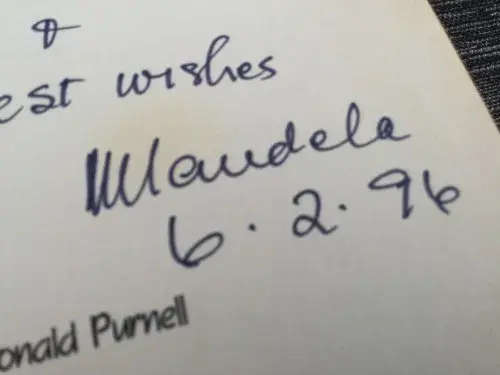 &
est wishes
Mandela
6.2.96
onald Purnell